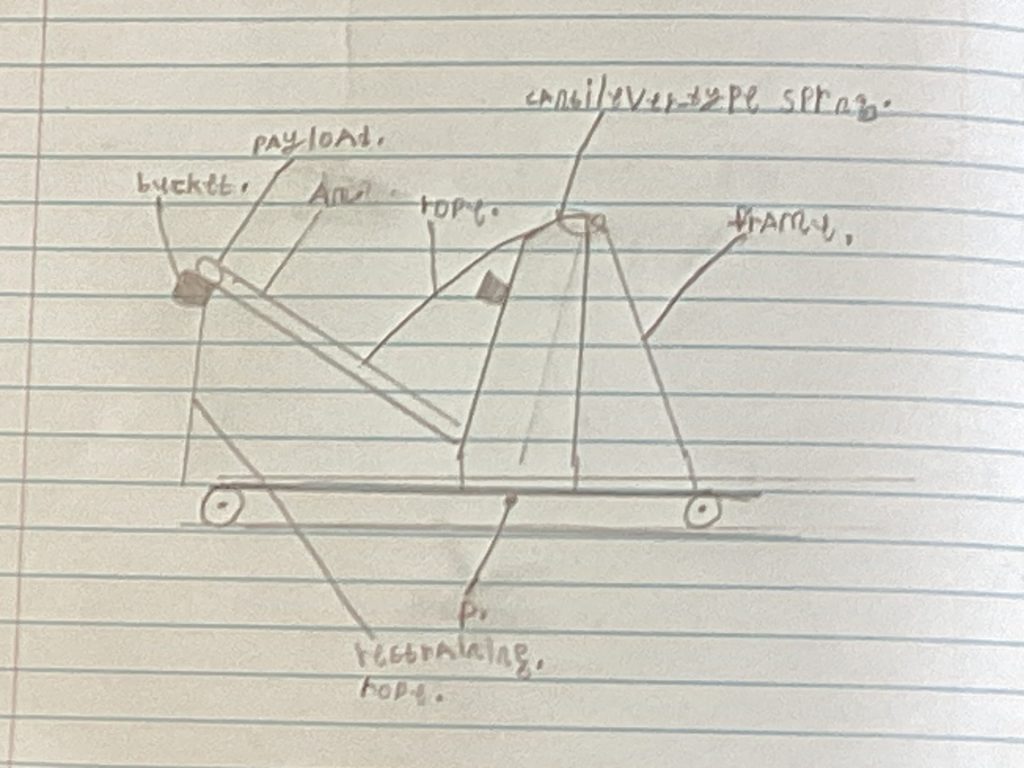 cantilever-type sprng.
payload.
bucket.
Arm.
rope.
frame.
P.
restraining.
rope.